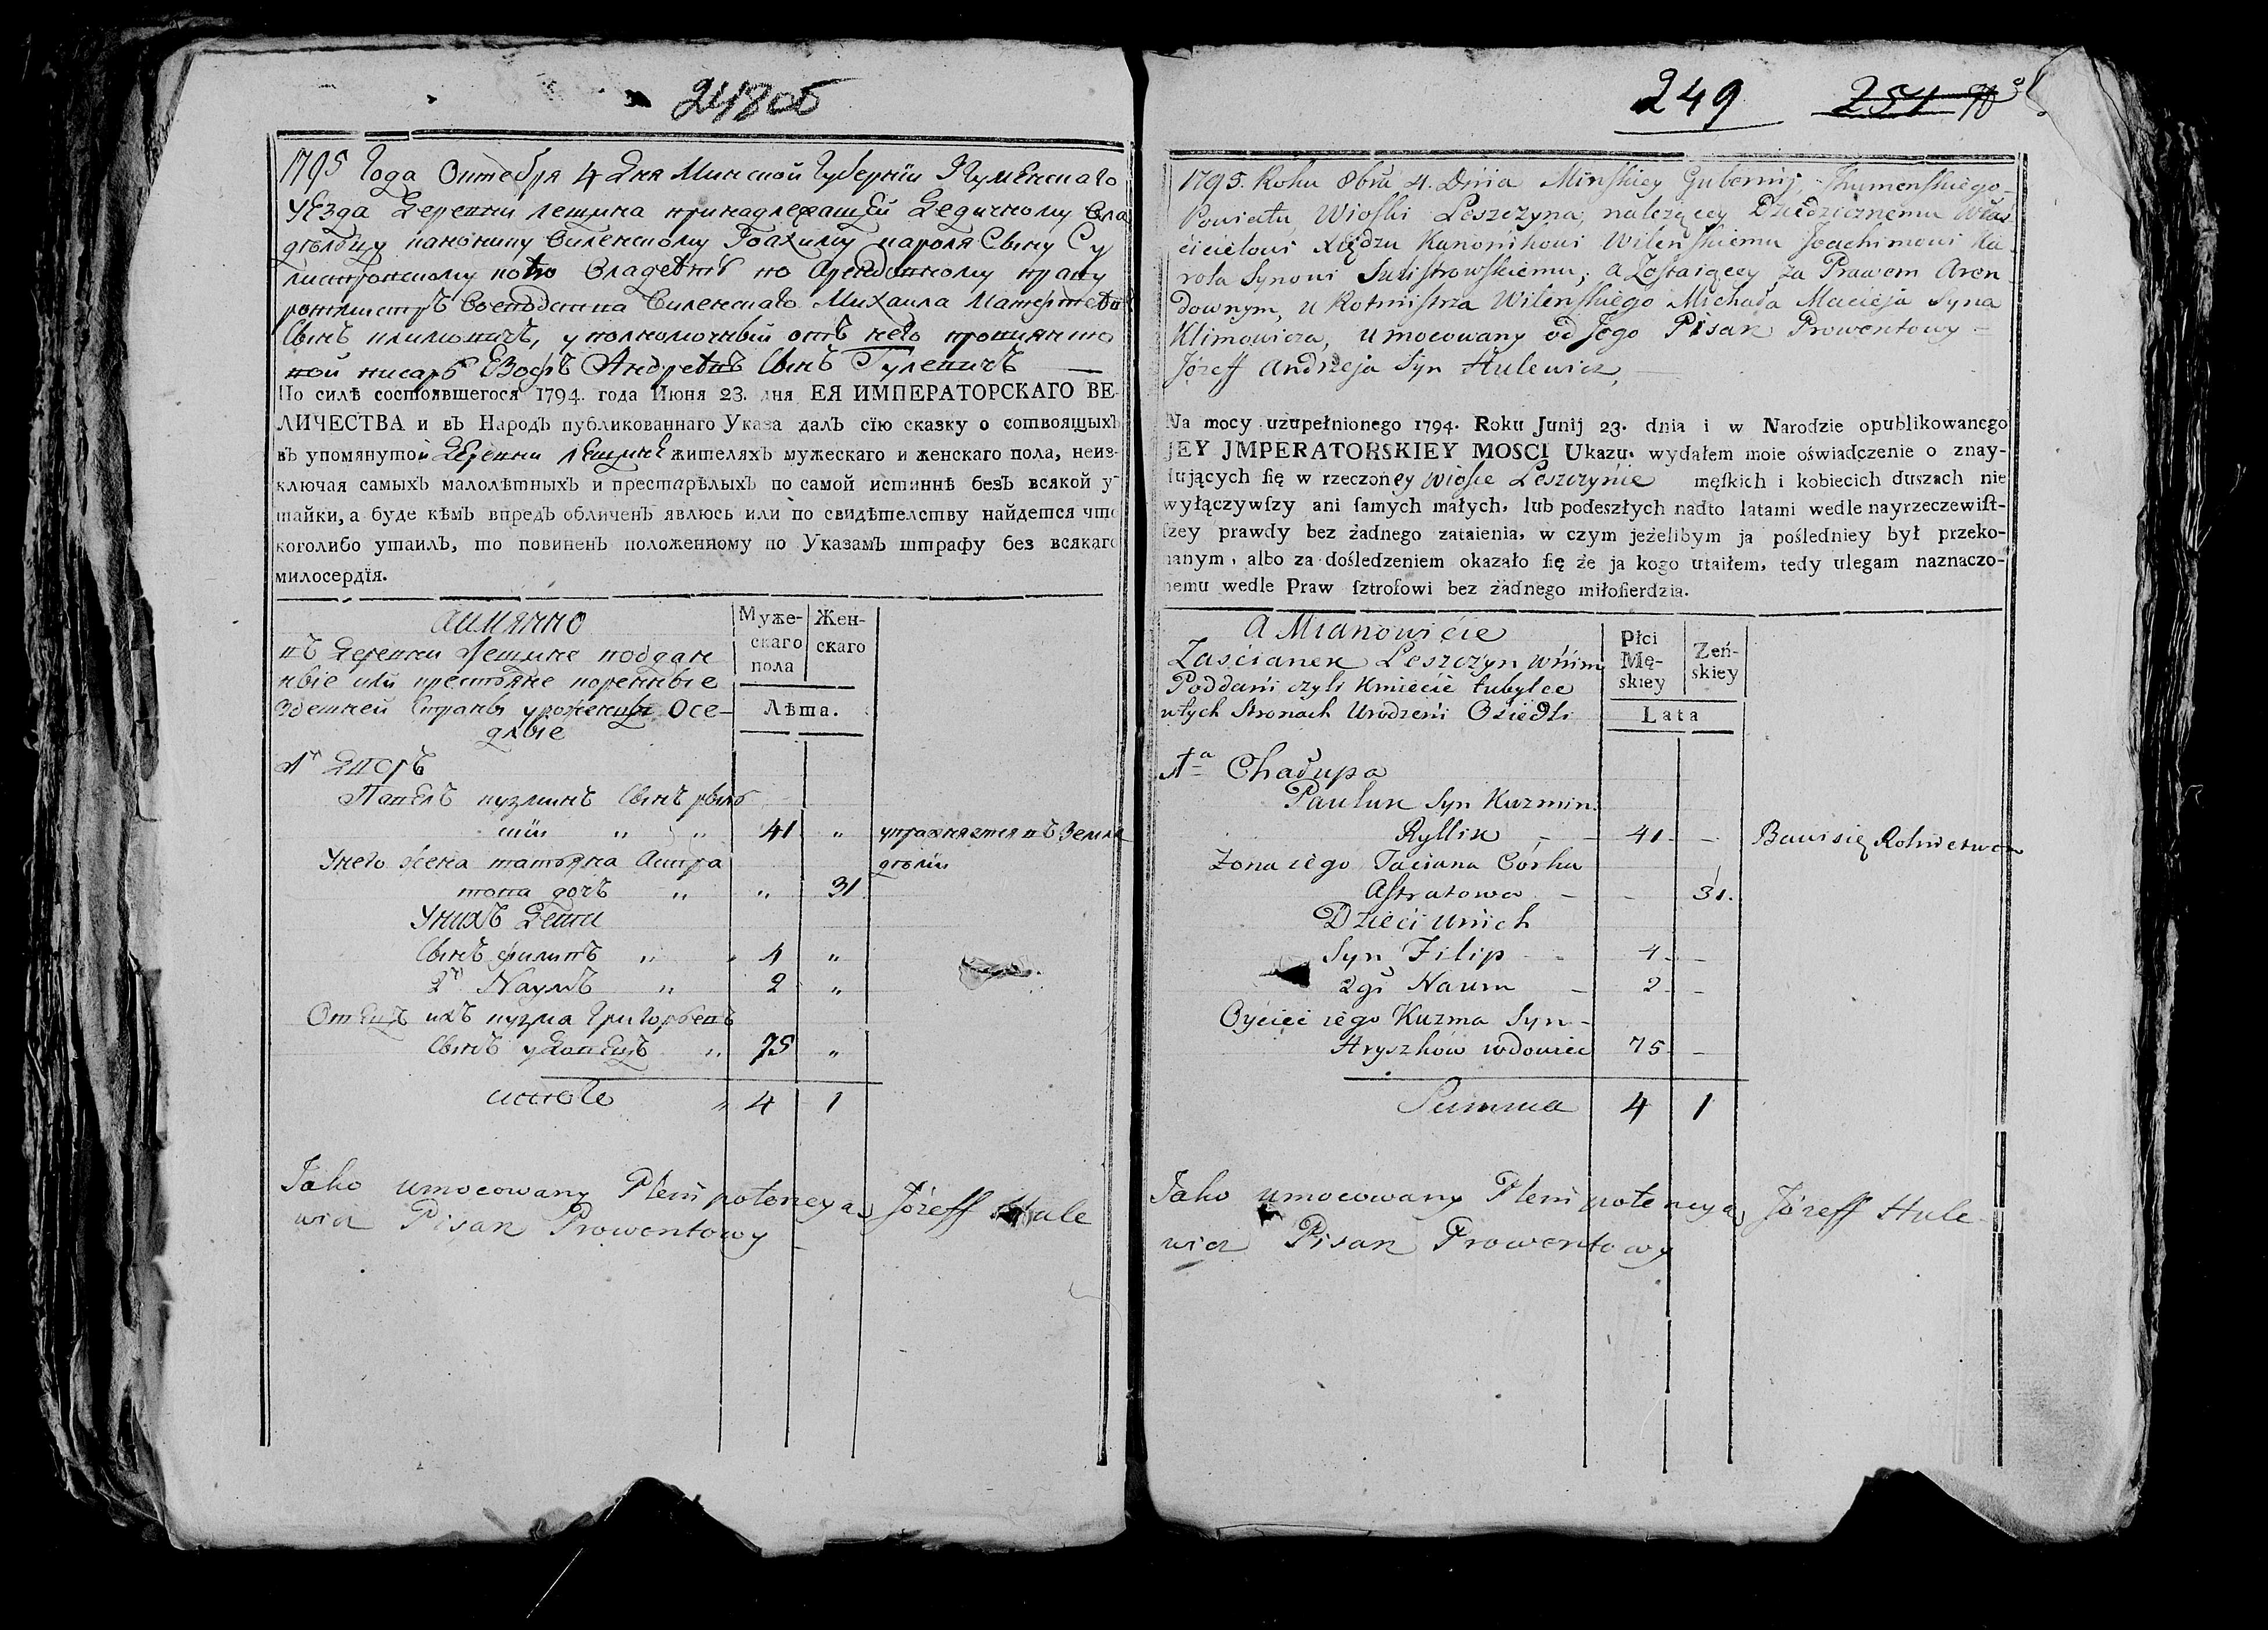 248об
1795 Года Октебря 4 Дня Минской Губернїи Игуменскаго
Уезда Деревни Лещина принадлежащей Дедичному Вла
дѣльцу канонику Виленскому Іоахиму Кароля Сыну Су
листровскому кою Владеетъ по Арендовному праву
ротмистръ Воеводства Виленскаго Михаила Матеушевъ
Сынъ Климовичъ, уполномочный отъ него провиянто
вой писарь Езофъ Андреевъ Сынъ Гулевичъ
По силѣ состоявшегося 1794. года Июня 23. дня ЕЯ ИМПЕРАТОРСКАГО ВЕ-
ЛИЧЕСТВА и въ Народъ публикованнаго Указа далъ сїю сказку о сотвоящыхъ
въ упомянутой Деревни Лещине жителяхъ мужескаго и женскаго пола, неиз-
ключая самыхъ малолѣтныхъ и престарѣлыхъ по самой истиннѣ безъ всякой у-
тайки, а буде кѣмъ впредъ обличенъ явлюсь или по свидѣтелству найдется что
коголибо утаилъ, то повиненъ положенному по Указамъ штрафу без всякаго
милосердїя.
Аимянно
въ Деревни Лещине поддан
ные или крестьяне коренные
Здешней Страны уроженцы Осе-
длые
Муже-
скаго
пола
Жен-
скаго
Лѣта.
1й Дворъ
Павелъ Кузминъ Сынъ рыл
кїй " " 41 " упражняется въ Земле
Унего жена татьяна Астра дѣлїи
това дочъ " " 31
Унихъ Дети
Сынъ филипъ " 4 "
2й Наумъ " 2 "
Отецъ ихъ кузма Григорьевъ
Сынъ удовецъ " 75 "
итого " 4 1
Jako umocowany Plenipotencyą Józeff Hule
wicz Pisarz Prowentowy
249 251
1795. Roku 8bra 4. Dnia Minskiey Gubernij, Jhumenskiego-
Powiatu, Wioski Leszczyna, należącey Dziedzicznemu Właś
cicielowi Xiędzu Kanonikowi Wileńskiemu Joachimowi Ka
rola Synowi Sulistrowskiemu; a Zostaiącey za Prawem Aren
downym, u Rotmistrza Wileńskiego Michała Macieja Syna
Klimowicza, umocowany od Jego Pisarz Prowentowy -
Józeff Andrzeja Syn Hulewicz,
Na mocy uzupełnionego 1794. Roku Junij 23. dnia i w Narodzie opublikowanego
JEY JMPERATORSKIEY MOSCI Ukazu. wydałem moie oświadczenie o znay-
dujących ſię w rzeczoney wiosce Leszczynie męſkich i kobiecich duszach nie
wyłączywſzy ani ſamych małych, lub podeszłych nadto latami wedle nayrzeczewiſt-
ſzey prawdy bez żadnego zataienia, w czym jeżelibym ja pośledniey był przeko-
nanym, albo za dośledzeniem okazało ſię że ja kogo utaiłem, tedy ulegam naznaczo-
nemu wedle Praw ſztrofowi bez żadnego miłoſierdzia.
A Mianowicie
Zaścianek Leszczyn w nim
Poddani czyli kmiecie tubylce
w tych Stronach Urodzeni Osiedli
Płci
Mę-
skiey
Zeń-
skiey
Lata
1a Chałupa
Pauluk Syn Kuzmin
Ryllik - 41 - Bawi się Rolnictwem
Zona iego Taciana Córka
Astratowa - - 31.
Dzieci unich
Syn Filip - 4 -
2gi Naum - 2 -
Oyciec iego Kuzma Syn-
Hryszków wdowiec 75 -
Summa 4 1
Jako umocowany Plenipotencyą Józeff Hule
wicz Pisarz Prowentowy